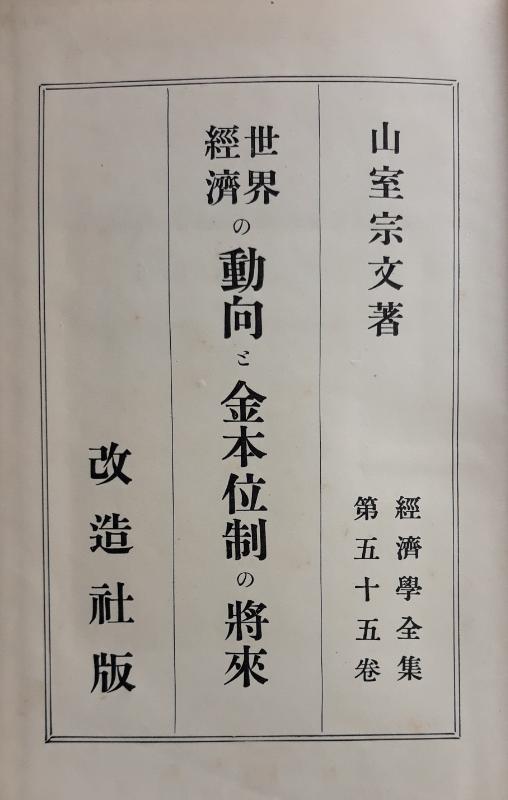 山室宗文著
經濟學全集
第五十五卷
世界經濟の動向と金本位制の將來
改造社版